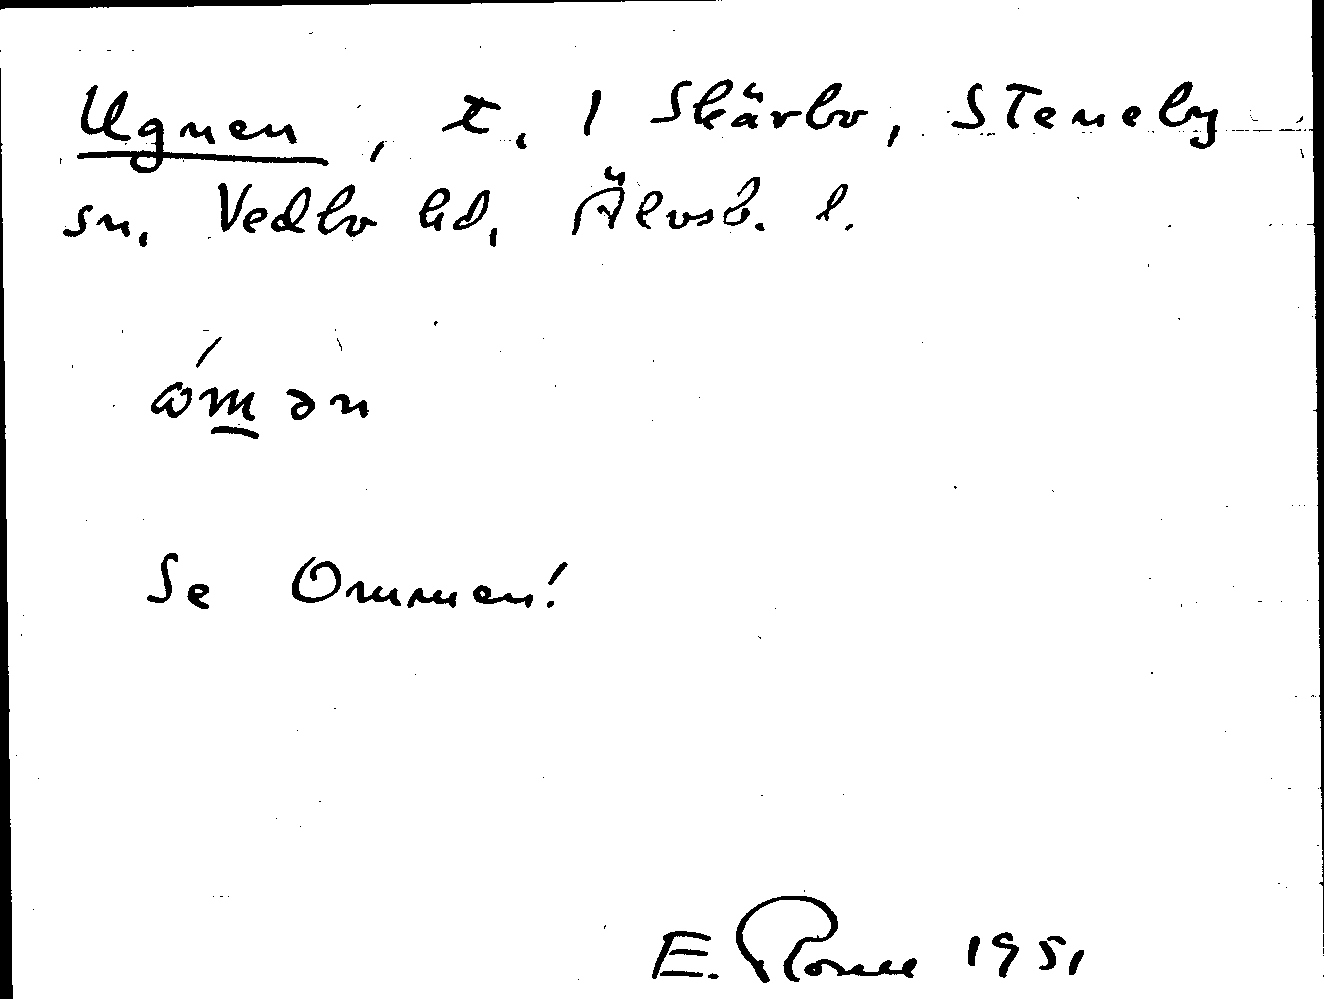 Ugnen, t. 1 Skärbo, Steneby
sn. Vedbo hd, Älvsb. l.
ὼm̲ən
Se Ommen!
E. 1951